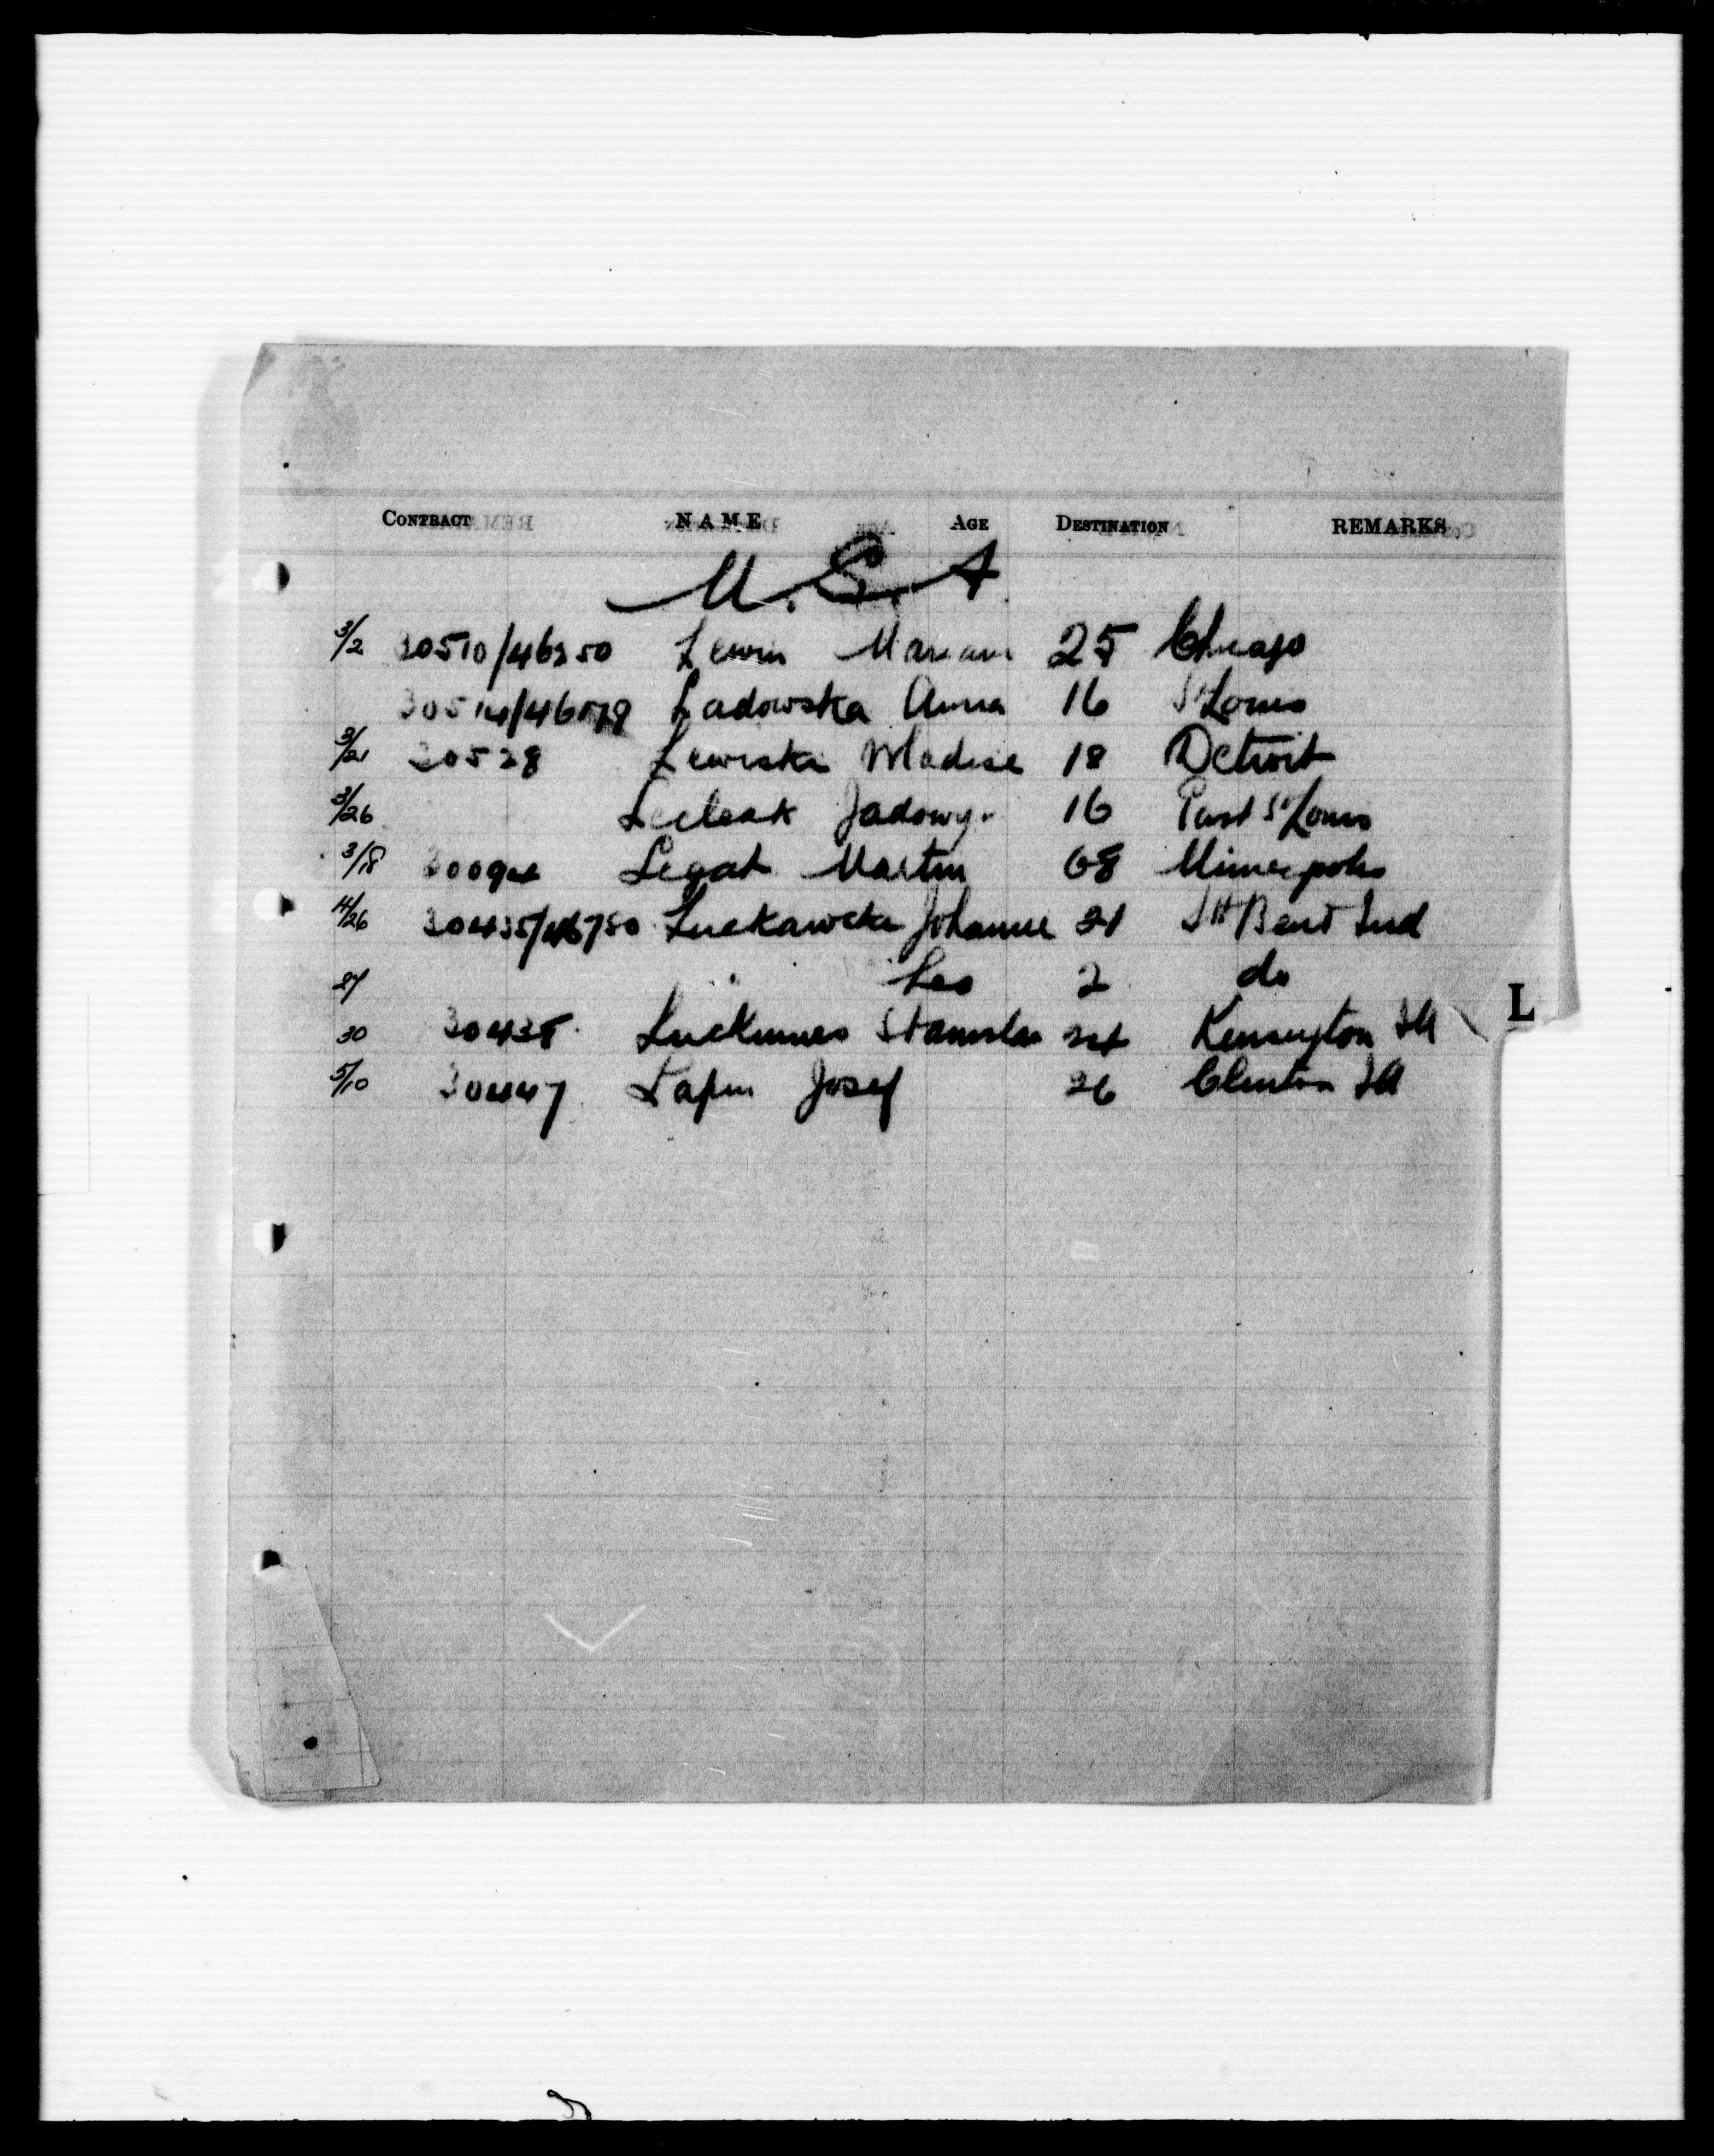 CONTRACT NAME AGE DESTINATION REMARKS
U.S.A.
3/2 30510/46250 Lewin Mariam 25 Chicago
30514/46079 Ladowska Anna 16 St Louis
3/21 30528 Lewiska Wladise 18 Detroit
3/26 Jadowy. 16 St Louis
3/18 Legat Martin 68 Minneapolis
4/26 30435/46750 Johanne 21 Sth Bend Ind
27 Leo 2 do
30 30438 Stanislas 24 Kensington Ill
5/10 30447 Lapin Josef 26 Clinton Ill
L